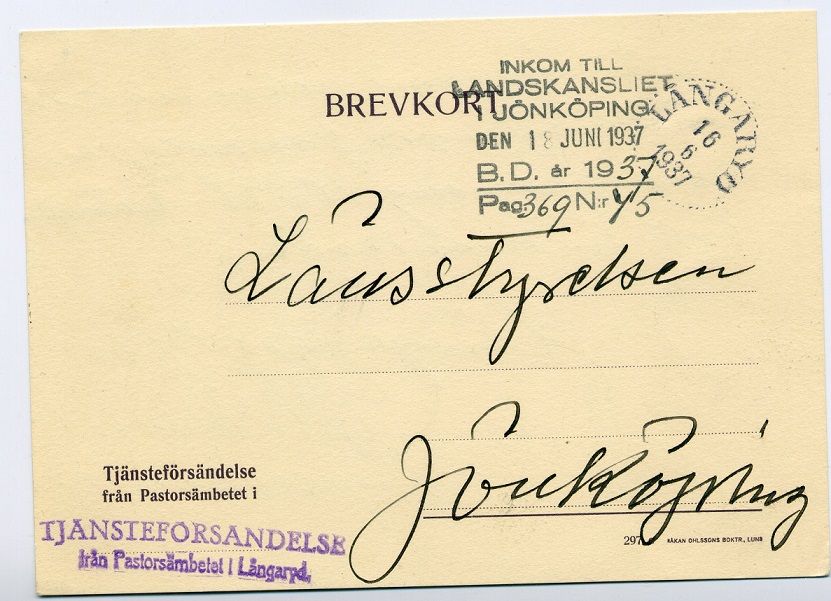 BREVKORT
INKOM TILL
LANDSKANSLIET
I JÖNKÖPING
DEN 18 JUNI 1937
B.D. år 1937
Pag. 369 N:r 45
LÅNGARYD
16
6
1937
Länsstyrelsen
Jönköping
Tjänsteförsändelse
från Pastorsämbetet i
TJÄNSTEFÖRSÄNDELSE
från Pastorsämbetet i Långaryd.
297
HÅKAN OHLSSONS BOKTR., LUND